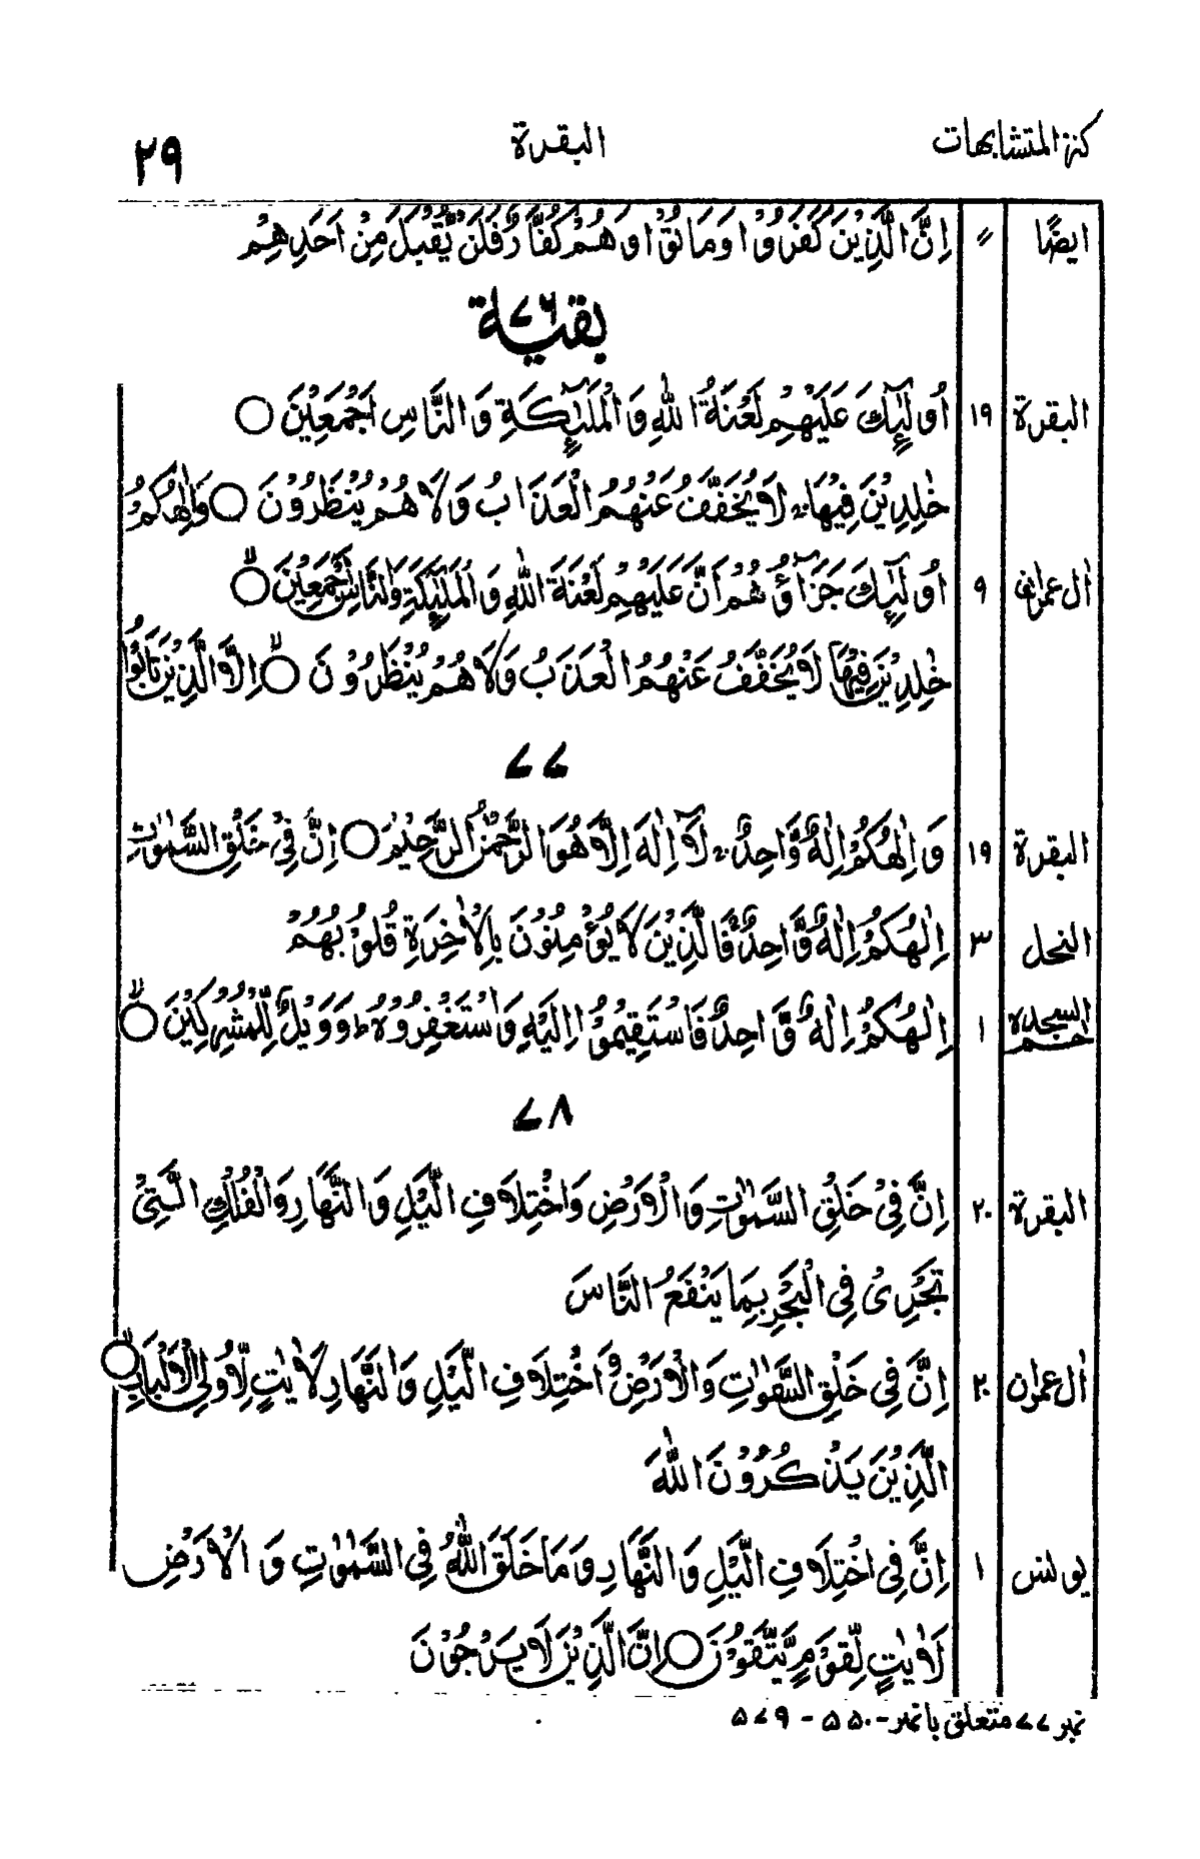 كنز المتشابهات البقرة ٢٩
ايضًا // اِنَّ الَّذِيْنَ كَفَرُوْا وَمَاتُوْا وَهُمْ كُفَّارٌ فَلَنْ يُّقْبَلَ مِنْ اَحَدِهِمْ
بقية ٧٦
البقرة ١٩ اُولٰٓئِكَ عَلَيْهِمْ لَعْنَةُ اللّٰهِ وَالْمَلٰٓئِكَةِ وَالنَّاسِ اَجْمَعِيْنَ ○
خٰلِدِيْنَ فِيْهَا ۚ لَا يُخَفَّفُ عَنْهُمُ الْعَذَابُ وَلَا هُمْ يُنْظَرُوْنَ ○ وَاِلٰهُكُمْ
اٰل عمرٰن ٩ اُولٰٓئِكَ جَزَآؤُهُمْ اَنَّ عَلَيْهِمْ لَعْنَةَ اللّٰهِ وَالْمَلٰٓئِكَةِ وَالنَّاسِ اَجْمَعِيْنَ ○ۙ
خٰلِدِيْنَ فِيْهَا ۚ لَا يُخَفَّفُ عَنْهُمُ الْعَذَبُ وَلَا هُمْ يُنْظَرُوْنَ ○ۙ اِلَّا الَّذِيْنَ تَابُوْا
٧٧
البقرة ١٩ وَاِلٰهُكُمْ اِلٰهٌ وَّاحِدٌ ۚ لَآ اِلٰهَ اِلَّا هُوَ الرَّحْمٰنُ الرَّحِيْمُ ○ اِنَّ فِيْ خَلْقِ السَّمٰوٰتِ
النحل ٣ اِلٰهُكُمْ اِلٰهٌ وَّاحِدٌ ۚ فَالَّذِيْنَ لَا يُؤْمِنُوْنَ بِالْاٰخِرَةِ قُلُوْبُهُمْ
السجدة حٰم ١ اِلٰهُكُمْ اِلٰهٌ وَّاحِدٌ فَاسْتَقِيْمُوْٓا اِلَيْهِ وَاسْتَغْفِرُوْهُ ؕ وَوَيْلٌ لِّلْمُشْرِكِيْنَ ○ۙ
٧٨
البقرة ٢٠ اِنَّ فِيْ خَلْقِ السَّمٰوٰتِ وَالْاَرْضِ وَاخْتِلَافِ الَّيْلِ وَالنَّهَارِ وَالْفُلْكِ الَّتِيْ
تَجْرِيْ فِي الْبَحْرِ بِمَا يَنْفَعُ النَّاسَ
اٰل عمران ٢٠ اِنَّ فِيْ خَلْقِ السَّمٰوٰتِ وَالْاَرْضِ وَاخْتِلَافِ الَّيْلِ وَالنَّهَارِ لَاٰيٰتٍ لِّاُولِي الْاَلْبَابِ ○ۙ
الَّذِيْنَ يَذْكُرُوْنَ اللّٰهَ
يونس ١ اِنَّ فِي اخْتِلَافِ الَّيْلِ وَالنَّهَارِ وَمَا خَلَقَ اللّٰهُ فِي السَّمٰوٰتِ وَالْاَرْضِ
لَاٰيٰتٍ لِّقَوْمٍ يَّتَّقُوْنَ ○ اِنَّ الَّذِيْنَ لَا يَرْجُوْنَ
نمبر ٧٧ متعلق بانمبر - ۵۵۰ - ۵٧٩